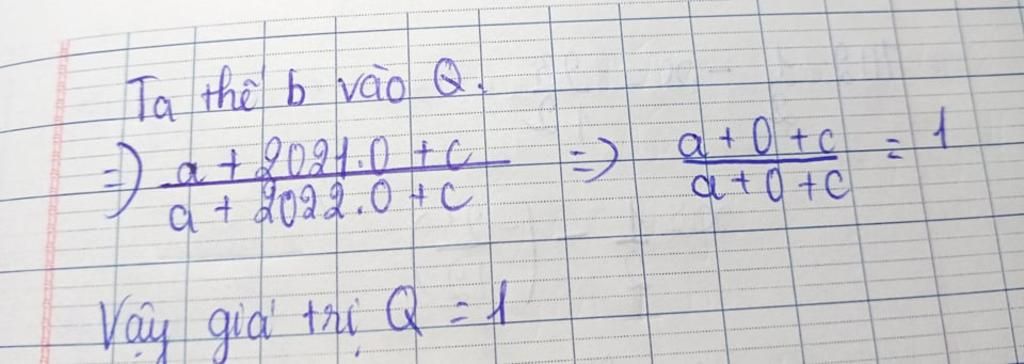 Ta thế b vào Q.
=> a + 2021.0 + c / a + 2022.0 + c => a + 0 + c / a + 0 + c = 1
Vậy giá trị Q = 1